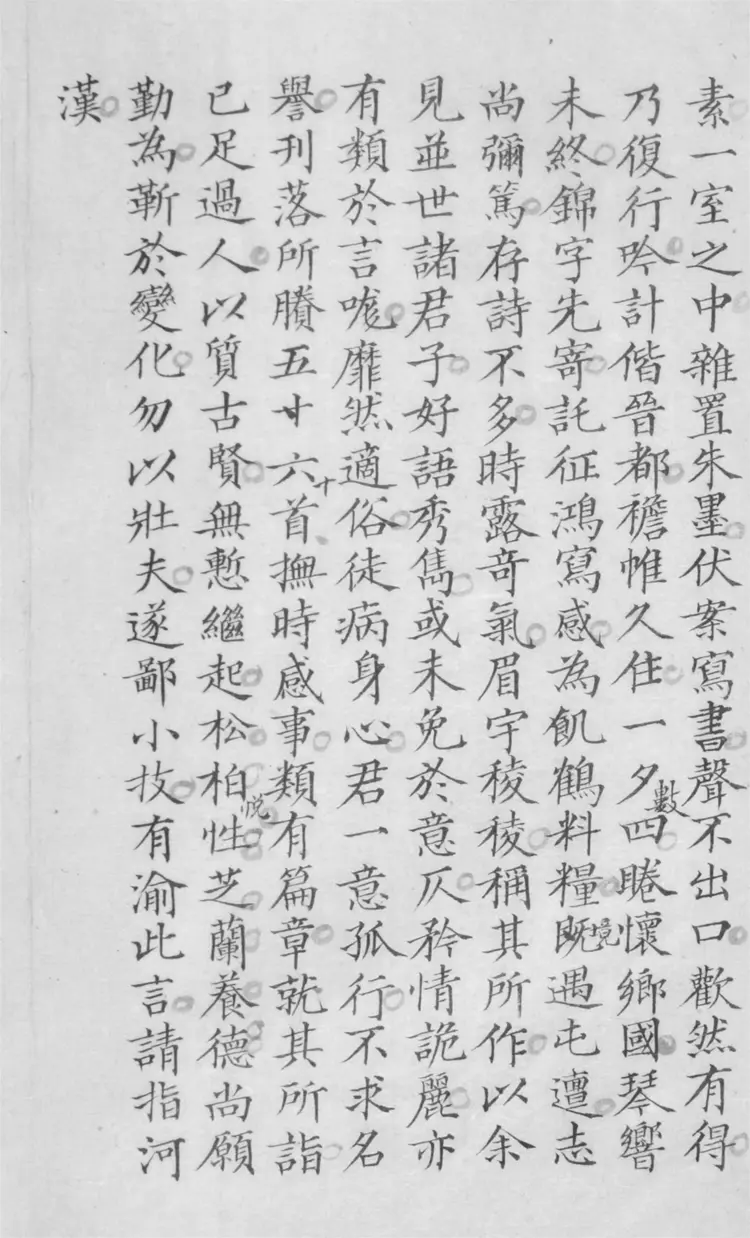 素一室之中雜置朱墨伏案寫書聲不出口歡然有得
乃復行吟計偕晉都襜帷久住一夕數四睠懷鄉國琴響
未終錦字先寄託征鴻寫感為飢鶴料糧既境遇屯邅志
尚彌篤存詩不多時露奇氣眉宇稜稜稱其所作以余
見並世諸君子好語秀雋或未免於意仄矜情詭麗亦
有類於言哤靡然適俗徒病身心君一意孤行不求名
譽刊落所賸五廿六十首撫時感事類有篇章就其所詣
已足過人以質古賢無慙繼起松柏悅性芝蘭養德尚願
勤為靳於變化勿以壯夫遂鄙小技有渝此言請指河
漢